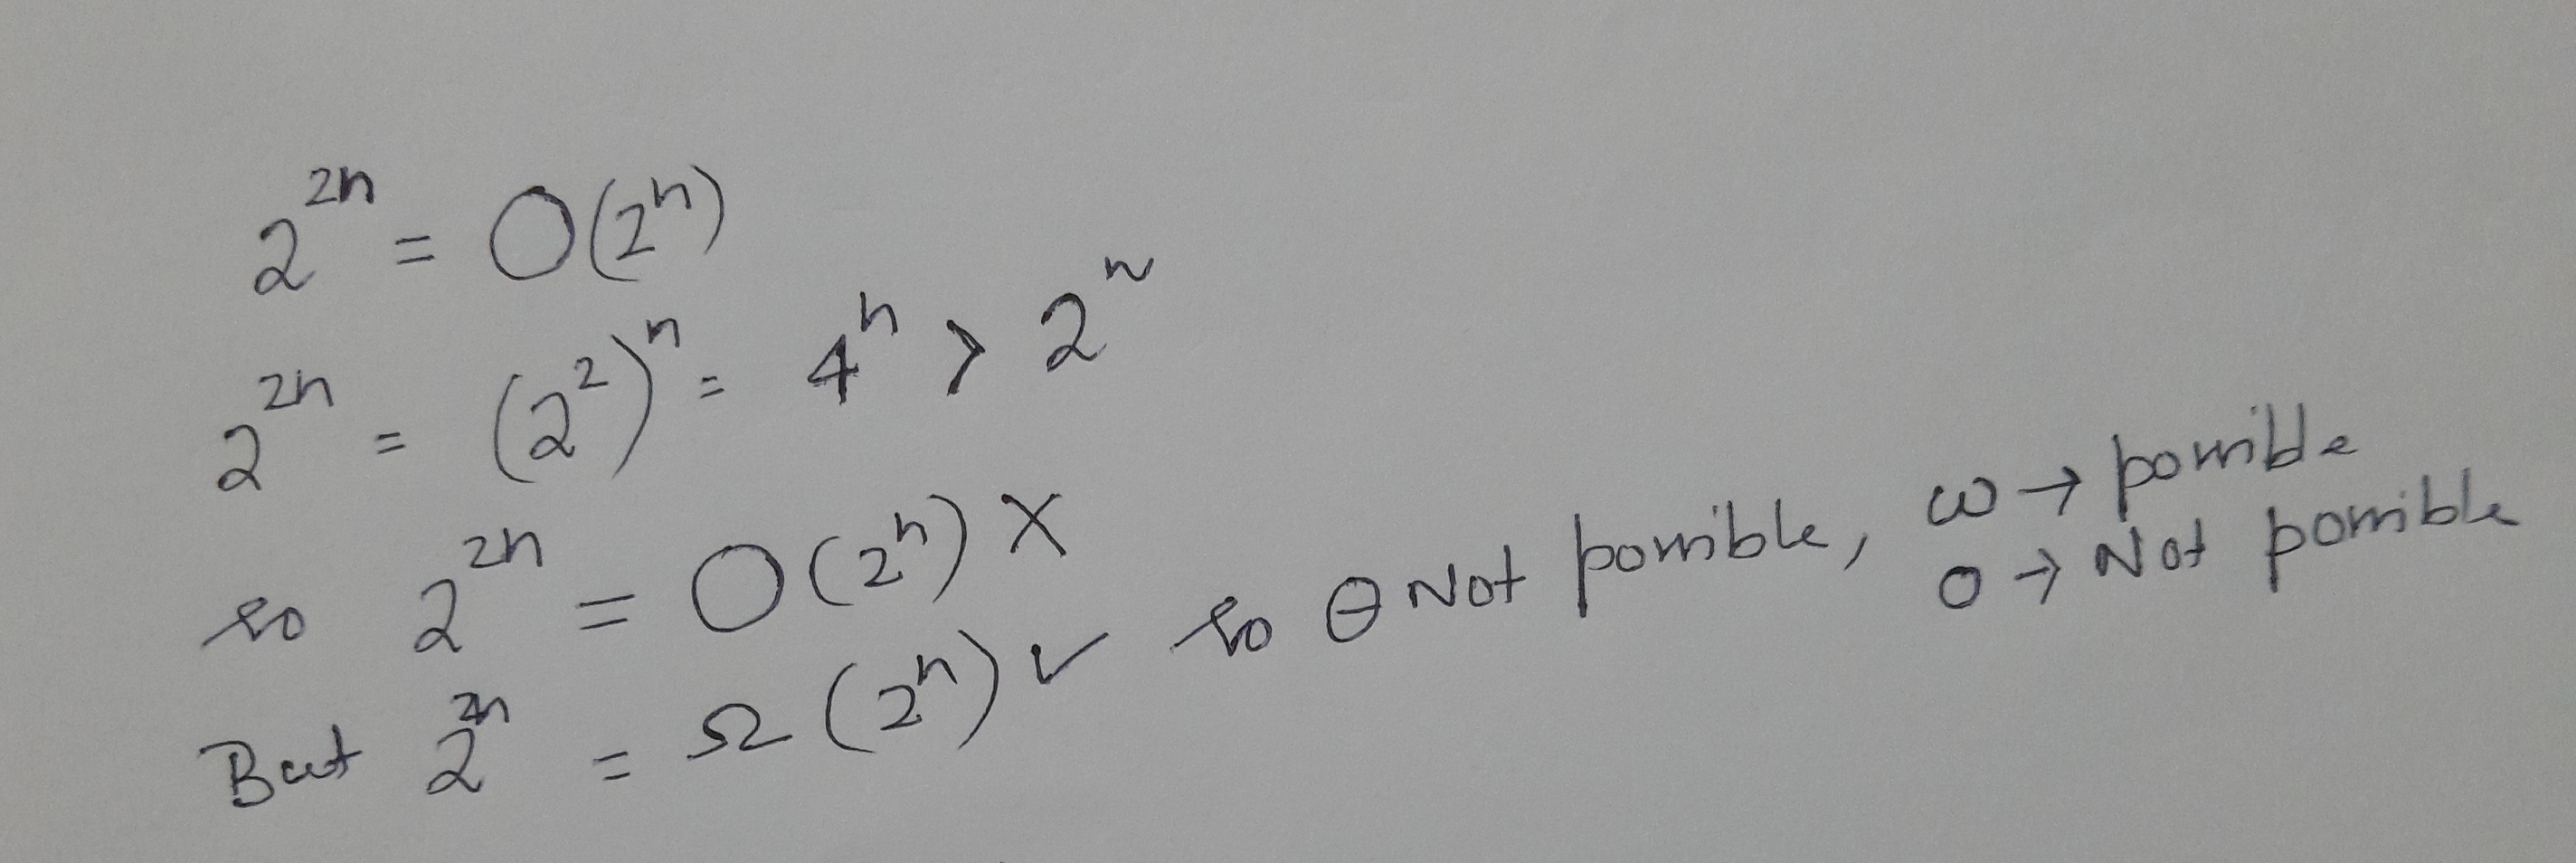 2^{2n} = O(2^n)
2^{2n} = (2^2)^n = 4^n > 2^n
so 2^{2n} = O(2^n) ×
But 2^{2n} = Ω(2^n) ✓ so θ Not possible, ω → possible
o → Not possible